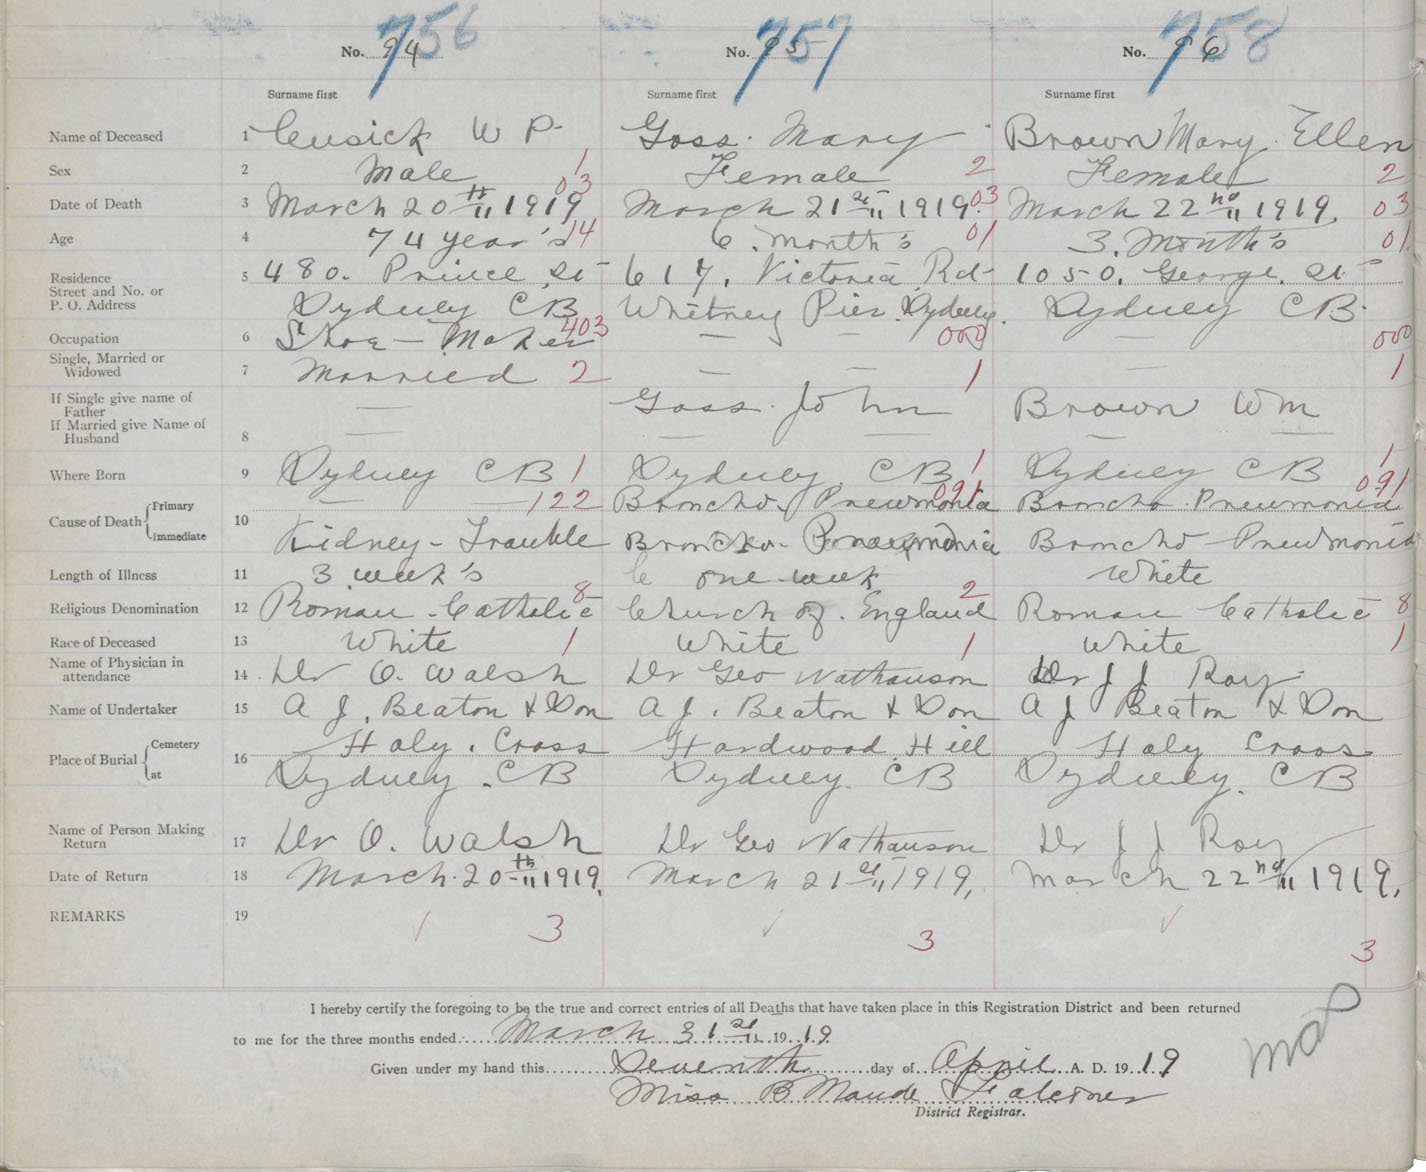 756 757 758
No. 94 No. 95 No. 96
Surname first Surname first Surname first
Name of Deceased 1 Cusick W P. Goss. Mary Brown Mary. Ellen
Sex 2 Male 1 Female 2 Female 2
Date of Death 3 March 20th 1919 03 March 21st 1919. 03 March 22nd 1919. 03
Age 4 74 year's 14 6. month's 01 3. Month's 01
Residence
Street and No. or
P. O. Address
5 480. Prince St 617, Victoria Rd 1050. George. St
Sydney CB Whitney Pier. Sydney. Sydney CB.
Occupation 6 Shoe - Maker 403 — — 000 — 000
Single, Married or
Widowed
7 Married 2 — — 1 — 1
If Single give name of
Father
If Married give Name of
Husband
8 — Goss. John Brown Wm
Where Born 9 Sydney CB 1 Sydney. CB 1 Sydney CB 1
Cause of Death Primary
Immediate
10 — — 122 Broncho. Pneumonia 091 Broncho. Pneumonia 091
Kidney - Trouble Broncho. Pneumonia Broncho Pneumonia
Length of Illness 11 3 week's one week White
Religious Denomination 12 Roman Catholic 8 Church of. England 2 Roman Catholic 8
Race of Deceased 13 White 1 White 1 White 1
Name of Physician in
attendance
14 Dr O. Walsh Dr Geo Nathanson Dr J J Roy
Name of Undertaker 15 A J. Beaton & Son A J. Beaton & Son A J Beaton & Son
Place of Burial Cemetery
at
16 Holy. Cross Hardwood Hill Holy Cross
Sydney. CB Sydney. CB Sydney. CB
Name of Person Making
Return
17 Dr O. Walsh Dr Geo Nathanson Dr J J Roy
Date of Return 18 March. 20th 1919. March 21st 1919, March 22nd 1919.
REMARKS 19
3 3 3
I hereby certify the foregoing to be the true and correct entries of all Deaths that have taken place in this Registration District and been returned
to me for the three months ended March 31st 1919
Given under my hand this Seventh day of April A. D. 1919
Miss B Maude Falconer
District Registrar.